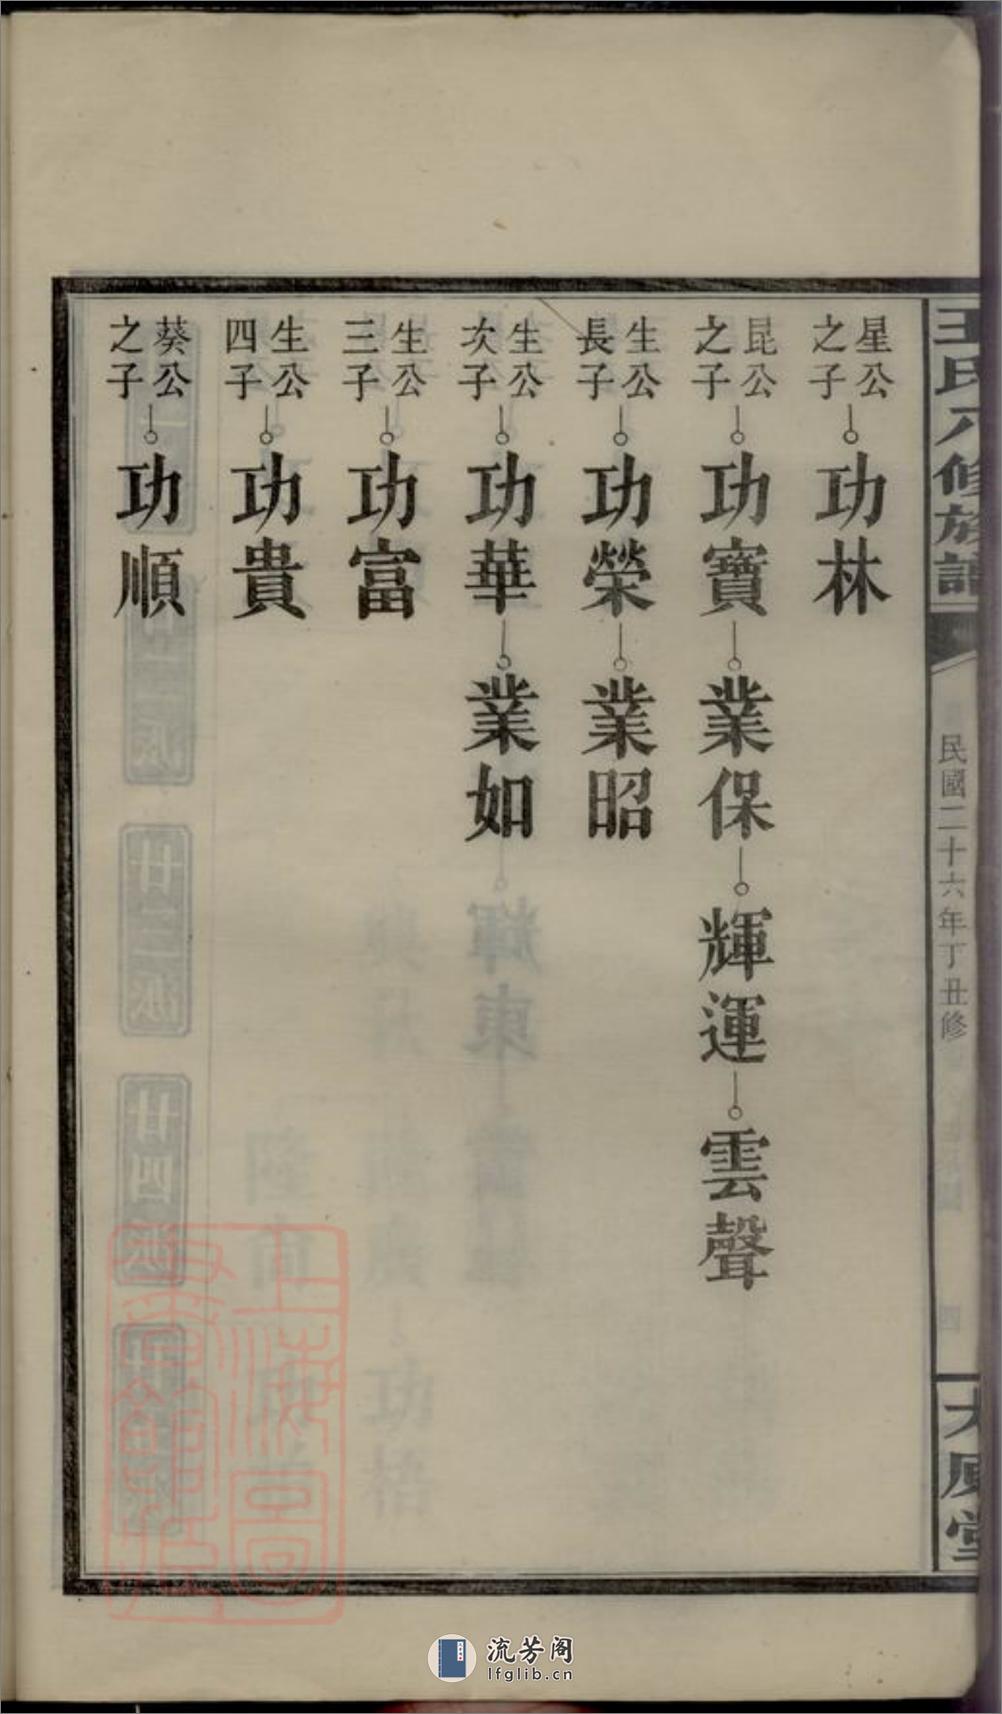 王氏六修族譜
民國二十六年丁丑修
四
大原堂
星公之子
功林
昆公之子
功寶
業保
輝運
雲聲
生公長子
功榮
業昭
生公次子
功華
業如
輝東
生公三子
功富
生公四子
功貴
葵公之子
功順
上海圖書館藏
流芳阁
lfglib.cn